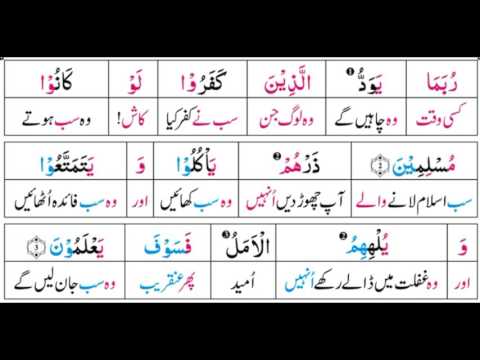 رُبَمَا يَوَدُّ ❶ الَّذِيْنَ كَفَرُوْا لَوْ كَانُوْا
کسی وقت وہ چاہیں گے وہ لوگ جن سب نے کفر کیا کاش! وہ سب ہوتے
مُسْلِمِيْنَ ۝۲ ذَرْهُمْ ❷ يَاْكُلُوْا وَ يَتَمَتَّعُوْا
سب اسلام لانے والے آپ چھوڑ دیں اُنہیں وہ سب کھائیں اور وہ سب فائدہ اُٹھائیں
وَ يُلْهِهِمُ ❷ الْاَمَلُ ❸ فَسَوْفَ يَعْلَمُوْنَ ۝۳
اور وہ غفلت میں ڈالے رکھے اُنہیں اُمید پھر عنقریب وہ سب جان لیں گے